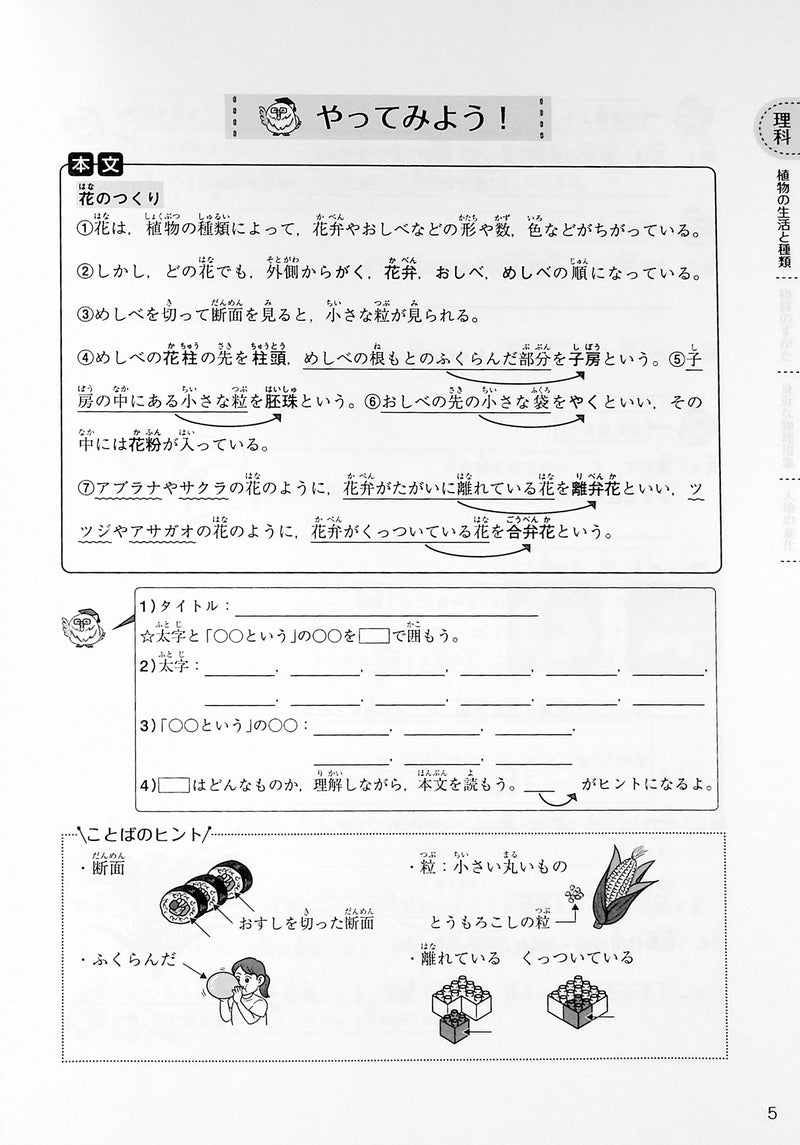 やってみよう！
理科
植物の生活と種類
物質のすがた
身近な物理現象
大地の変化
本文
花のつくり
①花は，植物の種類によって，花弁やおしべなどの形や数，色などがちがっている。
②しかし，どの花でも，外側からがく，花弁，おしべ，めしべの順になっている。
③めしべを切って断面を見ると，小さな粒が見られる。
④めしべの花柱の先を柱頭，めしべの根もとのふくらんだ部分を子房という。⑤子
房の中にある小さな粒を胚珠という。⑥おしべの先の小さな袋をやくといい，その
中には花粉が入っている。
⑦アブラナやサクラの花のように，花弁がたがいに離れている花を離弁花といい，ツ
ツジやアサガオの花のように，花弁がくっついている花を合弁花という。
1)タイトル：
☆太字と「○○という」の○○を□で囲もう。
2)太字：＿＿＿，＿＿＿，＿＿＿，＿＿＿，＿＿＿，＿＿＿，
＿＿＿，＿＿＿，＿＿＿，＿＿＿，＿＿＿
3)「○○という」の○○：＿＿＿，＿＿＿，＿＿＿，
＿＿＿，＿＿＿
4)□はどんなものか，理解しながら，本文を読もう。＿＿がヒントになるよ。
ことばのヒント
・断面
おすしを切った断面
・粒：小さい丸いもの
とうもろこしの粒
・ふくらんだ
・離れている　くっついている
5